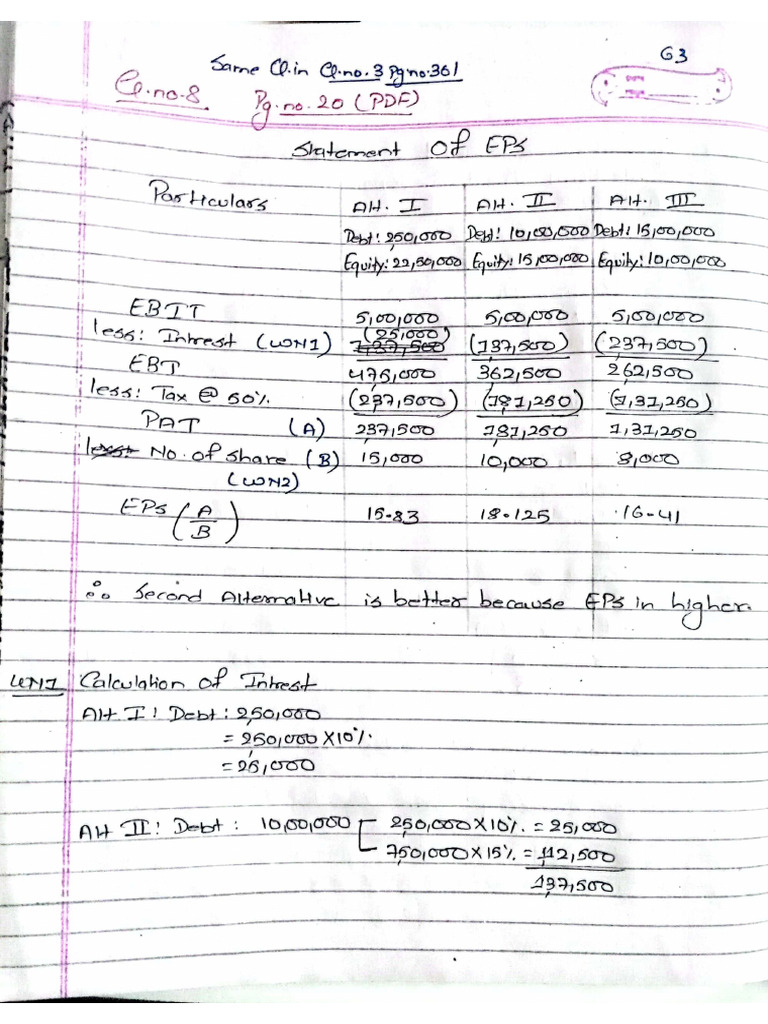 63
Same Q.in Q.no.3 Pg no.361
Q.no.8 Pg.no.20 (PDF)
Statement of EPS
Particulars Alt. I Alt. II Alt. III
Debt: 250,000 Debt: 10,00,000 Debt: 15,00,000
Equity: 22,50,000 Equity: 15,00,000 Equity: 10,00,000
EBIT 5,00,000 5,00,000 5,00,000
less: Intrest (WN1) (25,000) (137,500) (237,500)
EBT 475,000 362,500 262,500
less: Tax @ 50% (237,500) (181,250) (1,31,250)
PAT (A) 237,500 181,250 1,31,250
No. of share (B) 15,000 10,000 8,000
(WN2)
EPS (A/B) 15.83 18.125 16.41
∴ Second Alternative is better because EPS in higher.
WN1 Calculation of Intrest
Alt I: Debt: 250,000
= 250,000 X10%.
= 25,000
Alt II: Debt: 10,00,000 250,000 X10%. = 25,000
750,000 X 15%. = 112,500
137,500